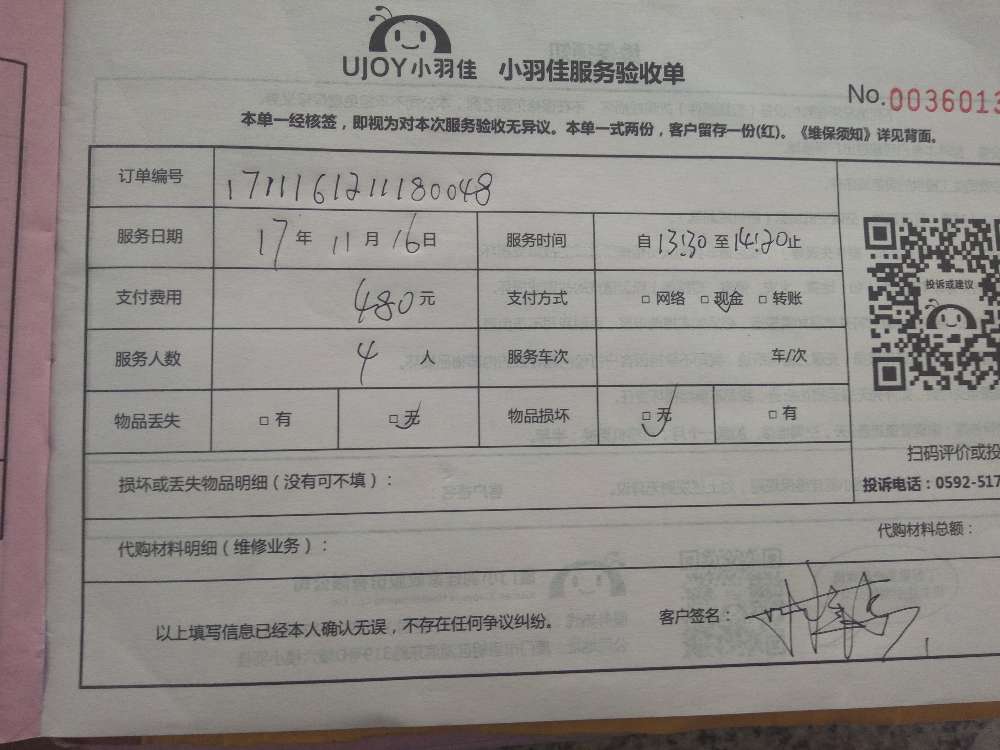 UJOY小羽佳 小羽佳服务验收单
No.0036013
本单一经核签，即视为对本次服务验收无异议。本单一式两份，客户留存一份(红)。《维保须知》详见背面。
订单编号 171116121180048
服务日期 17年11月16日 服务时间 自13:30至14:20止
支付费用 480元 支付方式 □网络 □现金 □转账
投诉或建议
服务人数 4人 服务车次 车/次
物品丢失 □有 □无 物品损坏 □无 □有
扫码评价或投
损坏或丢失物品明细（没有可不填）：
投诉电话：0592-517
代购材料明细（维修业务）： 代购材料总额：
以上填写信息已经本人确认无误，不存在任何争议纠纷。 客户签名：